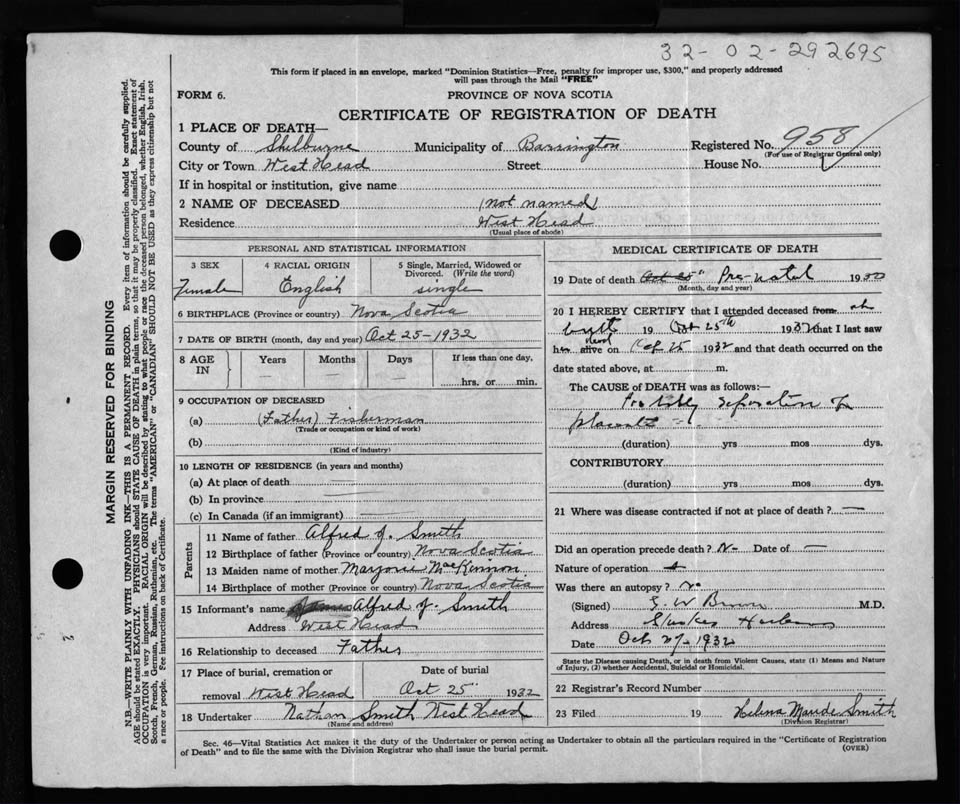 32-02-292695
This form if placed in an envelope, marked "Dominion Statistics—Free, penalty for improper use, $300," and properly addressed
will pass through the Mail "FREE"
FORM 6.
PROVINCE OF NOVA SCOTIA
CERTIFICATE OF REGISTRATION OF DEATH
1 PLACE OF DEATH—
County of Shelburne Municipality of Barrington Registered No. 958
(For use of Registrar General only)
City or Town West Head Street House No.
If in hospital or institution, give name
2 NAME OF DECEASED (not named)
Residence West Head
(Usual place of abode)
PERSONAL AND STATISTICAL INFORMATION
3 SEX
Female
4 RACIAL ORIGIN
English
5 Single, Married, Widowed or
Divorced. (Write the word)
single
6 BIRTHPLACE (Province or country) Nova Scotia
7 DATE OF BIRTH (month, day and year) Oct 25-1932
8 AGE
IN
Years Months Days If less than one day,
— — — hrs. or min.
9 OCCUPATION OF DECEASED
(a) (Father) Fisherman
(Trade or occupation or kind of work)
(b)
(Kind of industry)
10 LENGTH OF RESIDENCE (in years and months)
(a) At place of death
(b) In province
(c) In Canada (if an immigrant)
Parents
11 Name of father Alfred J. Smith
12 Birthplace of father (Province or country) Nova Scotia
13 Maiden name of mother Marjorie MacKennon
14 Birthplace of mother (Province or country) Nova Scotia
15 Informant's name Alfred J. Smith
Address West Head
16 Relationship to deceased Father
17 Place of burial, cremation or
removal West Head
Date of burial
Oct 25 1932
18 Undertaker Nathan Smith West Head
(Name and address)
MEDICAL CERTIFICATE OF DEATH
19 Date of death Oct 25" Pre-natal 19
(Month, day and year)
20 I HEREBY CERTIFY that I attended deceased from at
birth 19 Oct 25th 1932 that I last saw
h alive on 25 1932 and that death occurred on the
date stated above, at m.
The CAUSE OF DEATH was as follows:—
Probably separation of
placenta
(duration) yrs mos dys.
CONTRIBUTORY
(duration) yrs mos dys.
21 Where was disease contracted if not at place of death? —
Did an operation precede death? No Date of —
Nature of operation
Was there an autopsy? No
(Signed) M.D.
Address Harbour
Date Oct 27 1932
State the Disease causing Death, or in death from Violent Causes, state (1) Means and Nature
of Injury, (2) whether Accidental, Suicidal or Homicidal.
22 Registrar's Record Number
23 Filed 19 Helena Maude Smith
(Division Registrar)
Sec. 46—Vital Statistics Act makes it the duty of the Undertaker or person acting as Undertaker to obtain all the particulars required in the "Certificate of Registration
of Death" and to file the same with the Division Registrar who shall issue the burial permit.
(OVER)
MARGIN RESERVED FOR BINDING
N.B.—WRITE PLAINLY WITH UNFADING INK—THIS IS A PERMANENT RECORD. Every item of information should be carefully supplied.
AGE should be stated EXACTLY. PHYSICIANS should STATE CAUSE OF DEATH in plain terms, so that it may be properly classified. Exact statement of
OCCUPATION is very important. RACIAL ORIGIN will be described by stating to what people or race the deceased person belonged, whether English, Irish,
Scotch, French, German, Russian, Ruthenian, etc. The terms "AMERICAN" or "CANADIAN" SHOULD NOT BE USED as they express citizenship but not
a race or people. Fee instructions on back of Certificate.